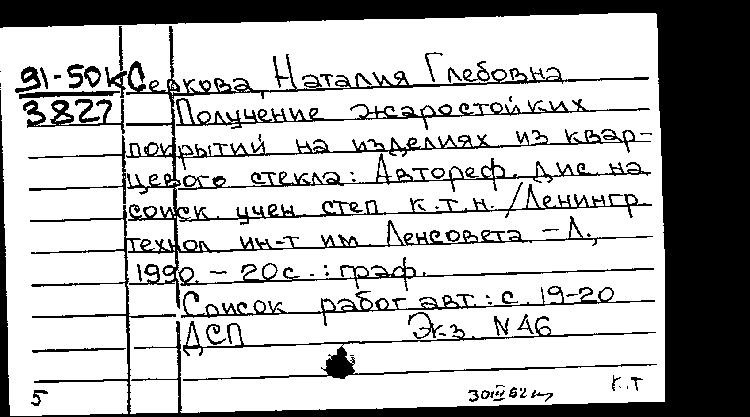 91-50к Серкова, Наталия Глебовна
3827 Получение жаростойких
покрытий на изделиях из квар-
цевого стекла: Автореф. дис. на
соиск. учен. степ. к.т.н. /Ленингр.
технол. ин-т им Ленсовета. - Л.,
1990. - 20с. : граф.
Список работ авт.: с. 19-20
ДСП Экз. N46
5 К.Т